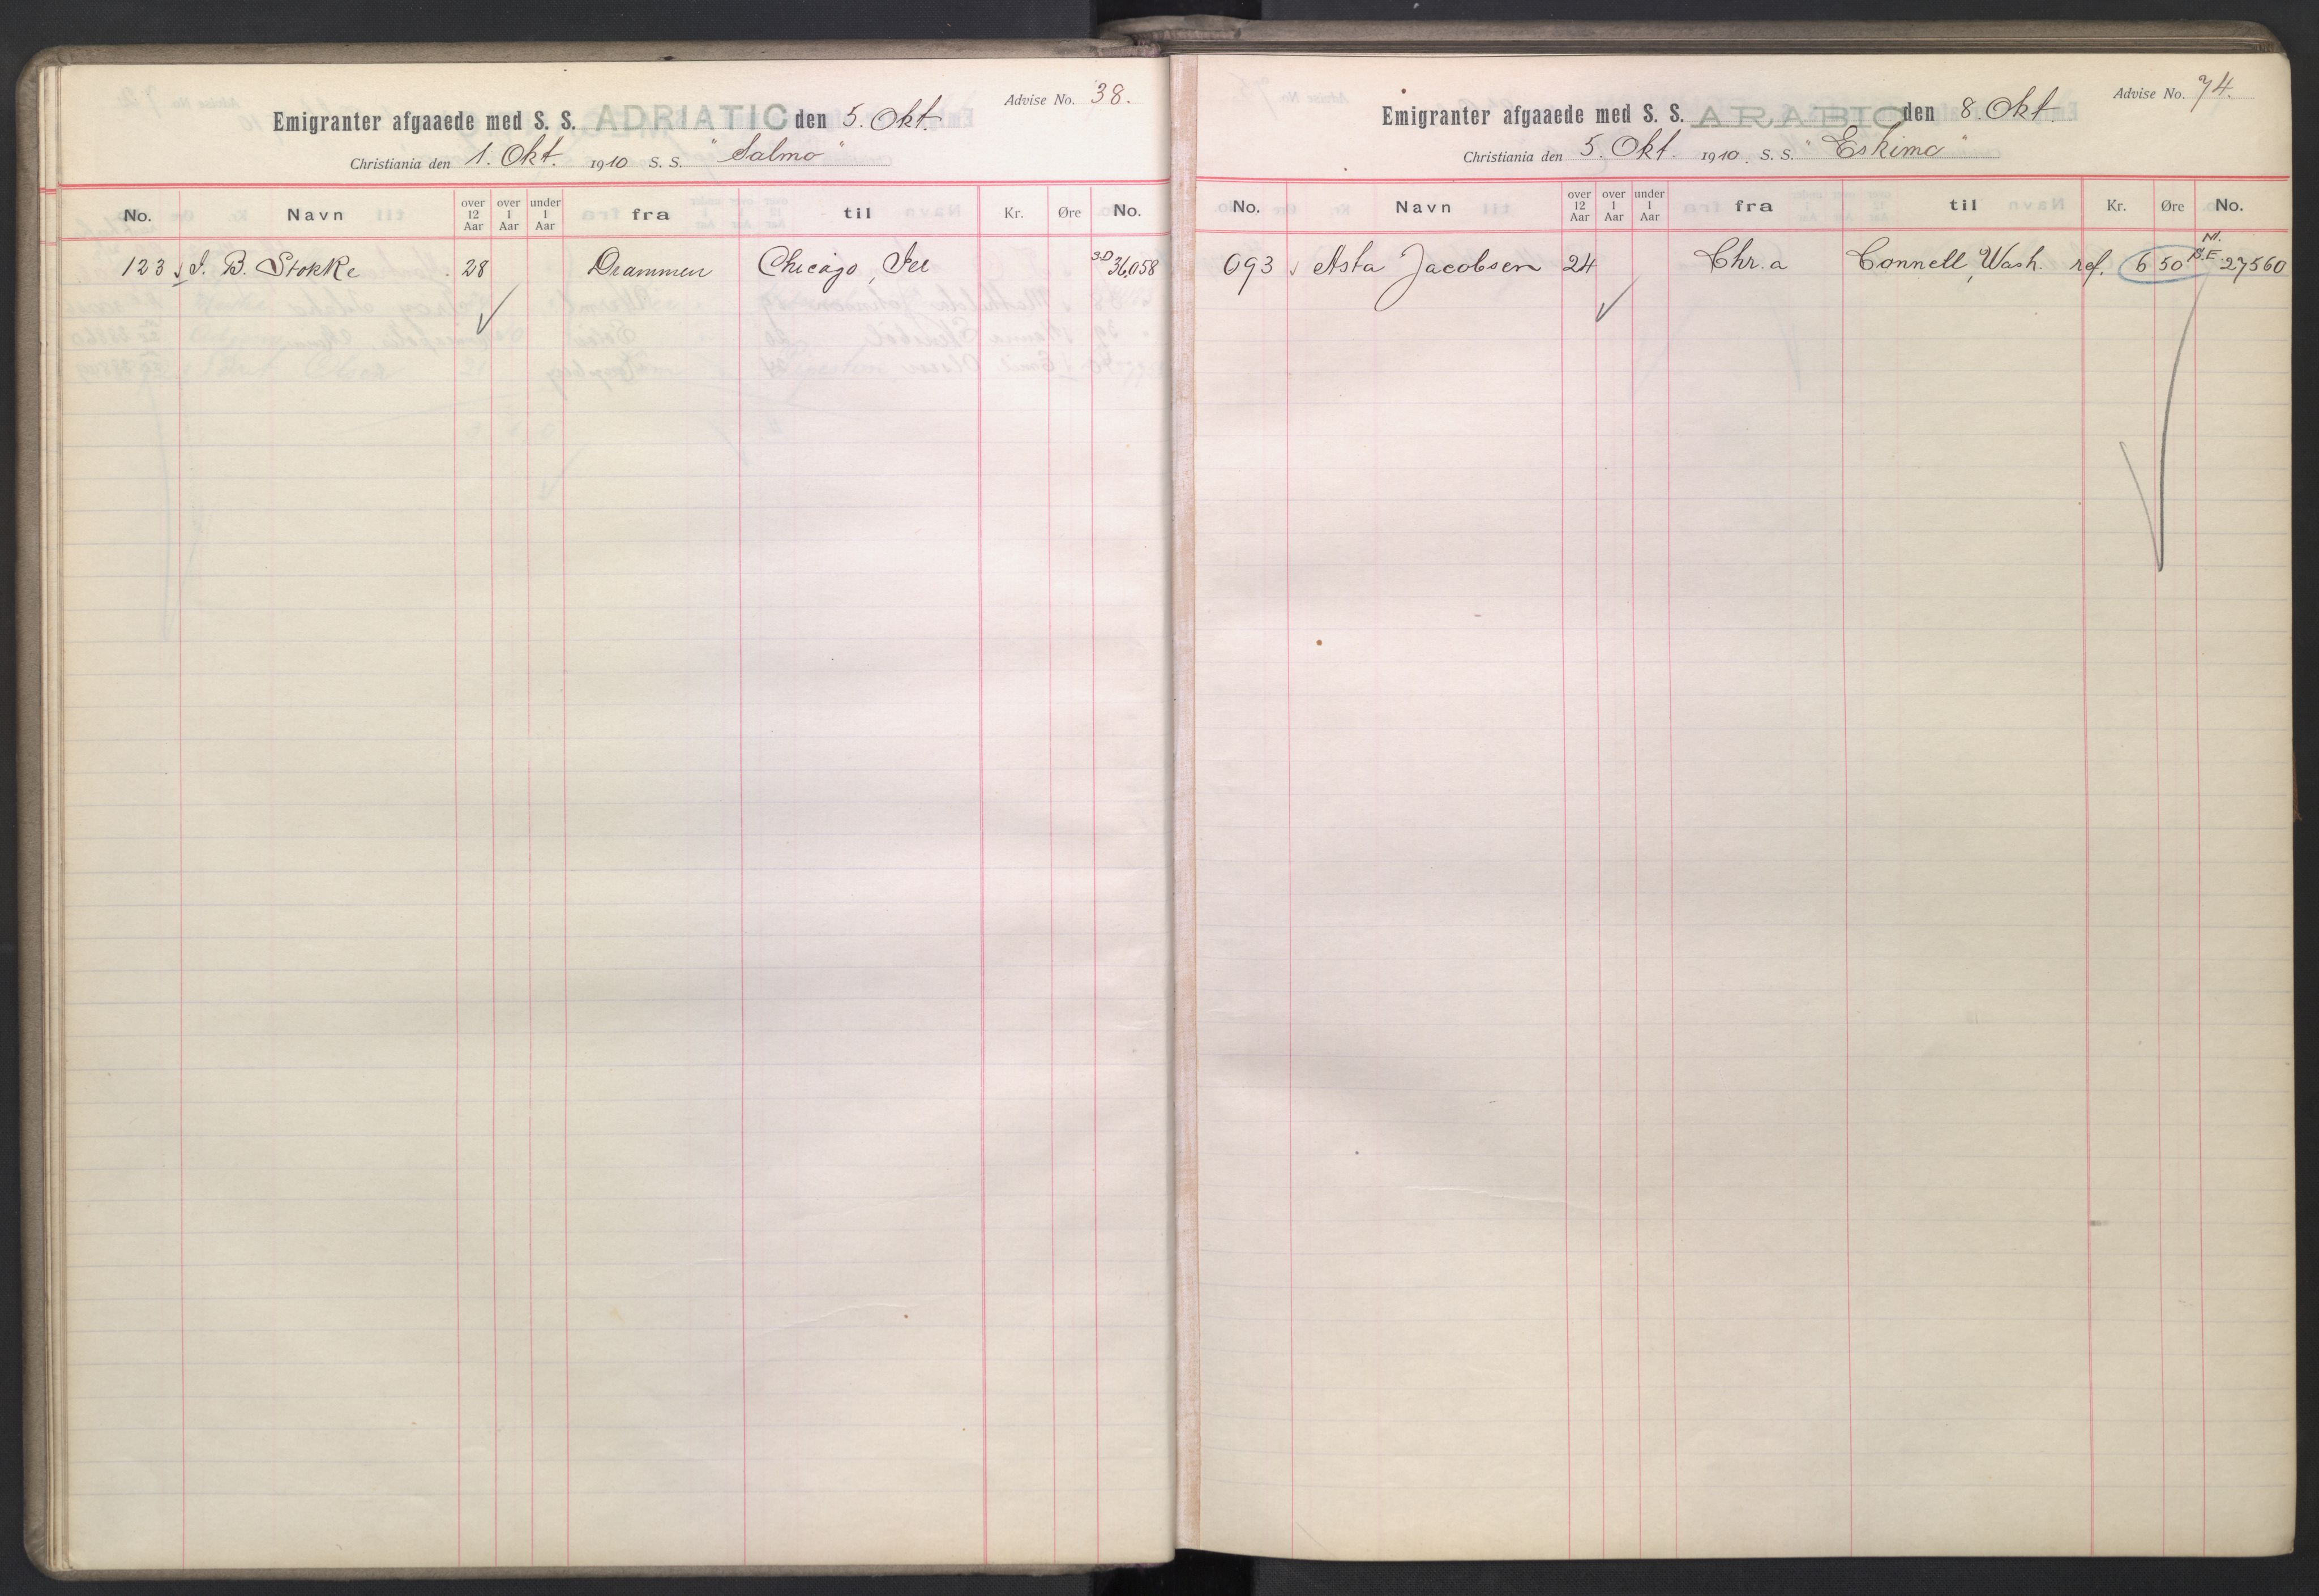 Advise No. 38.
Emigranter afgaaede med S. S. ADRIATIC den 5. Okt.
Christiania den 1. Okt. 1910 S. S. "Salmo"
No. Navn over 12 Aar over 1 Aar under 1 Aar fra til Kr. Øre No.
123 J. B. Stokke 28 Drammen Chicago, Ill S.D 36,058
Advise No. 74.
Emigranter afgaaede med S. S. ARABIC den 8. Okt.
Christiania den 5. Okt. 1910. S. S. "Eskimo"
No. Navn over 12 Aar over 1 Aar under 1 Aar fra til Kr. Øre No.
093 Asta Jacobsen 24 Chr.a Connell, Wash. ref. 6 50 27560